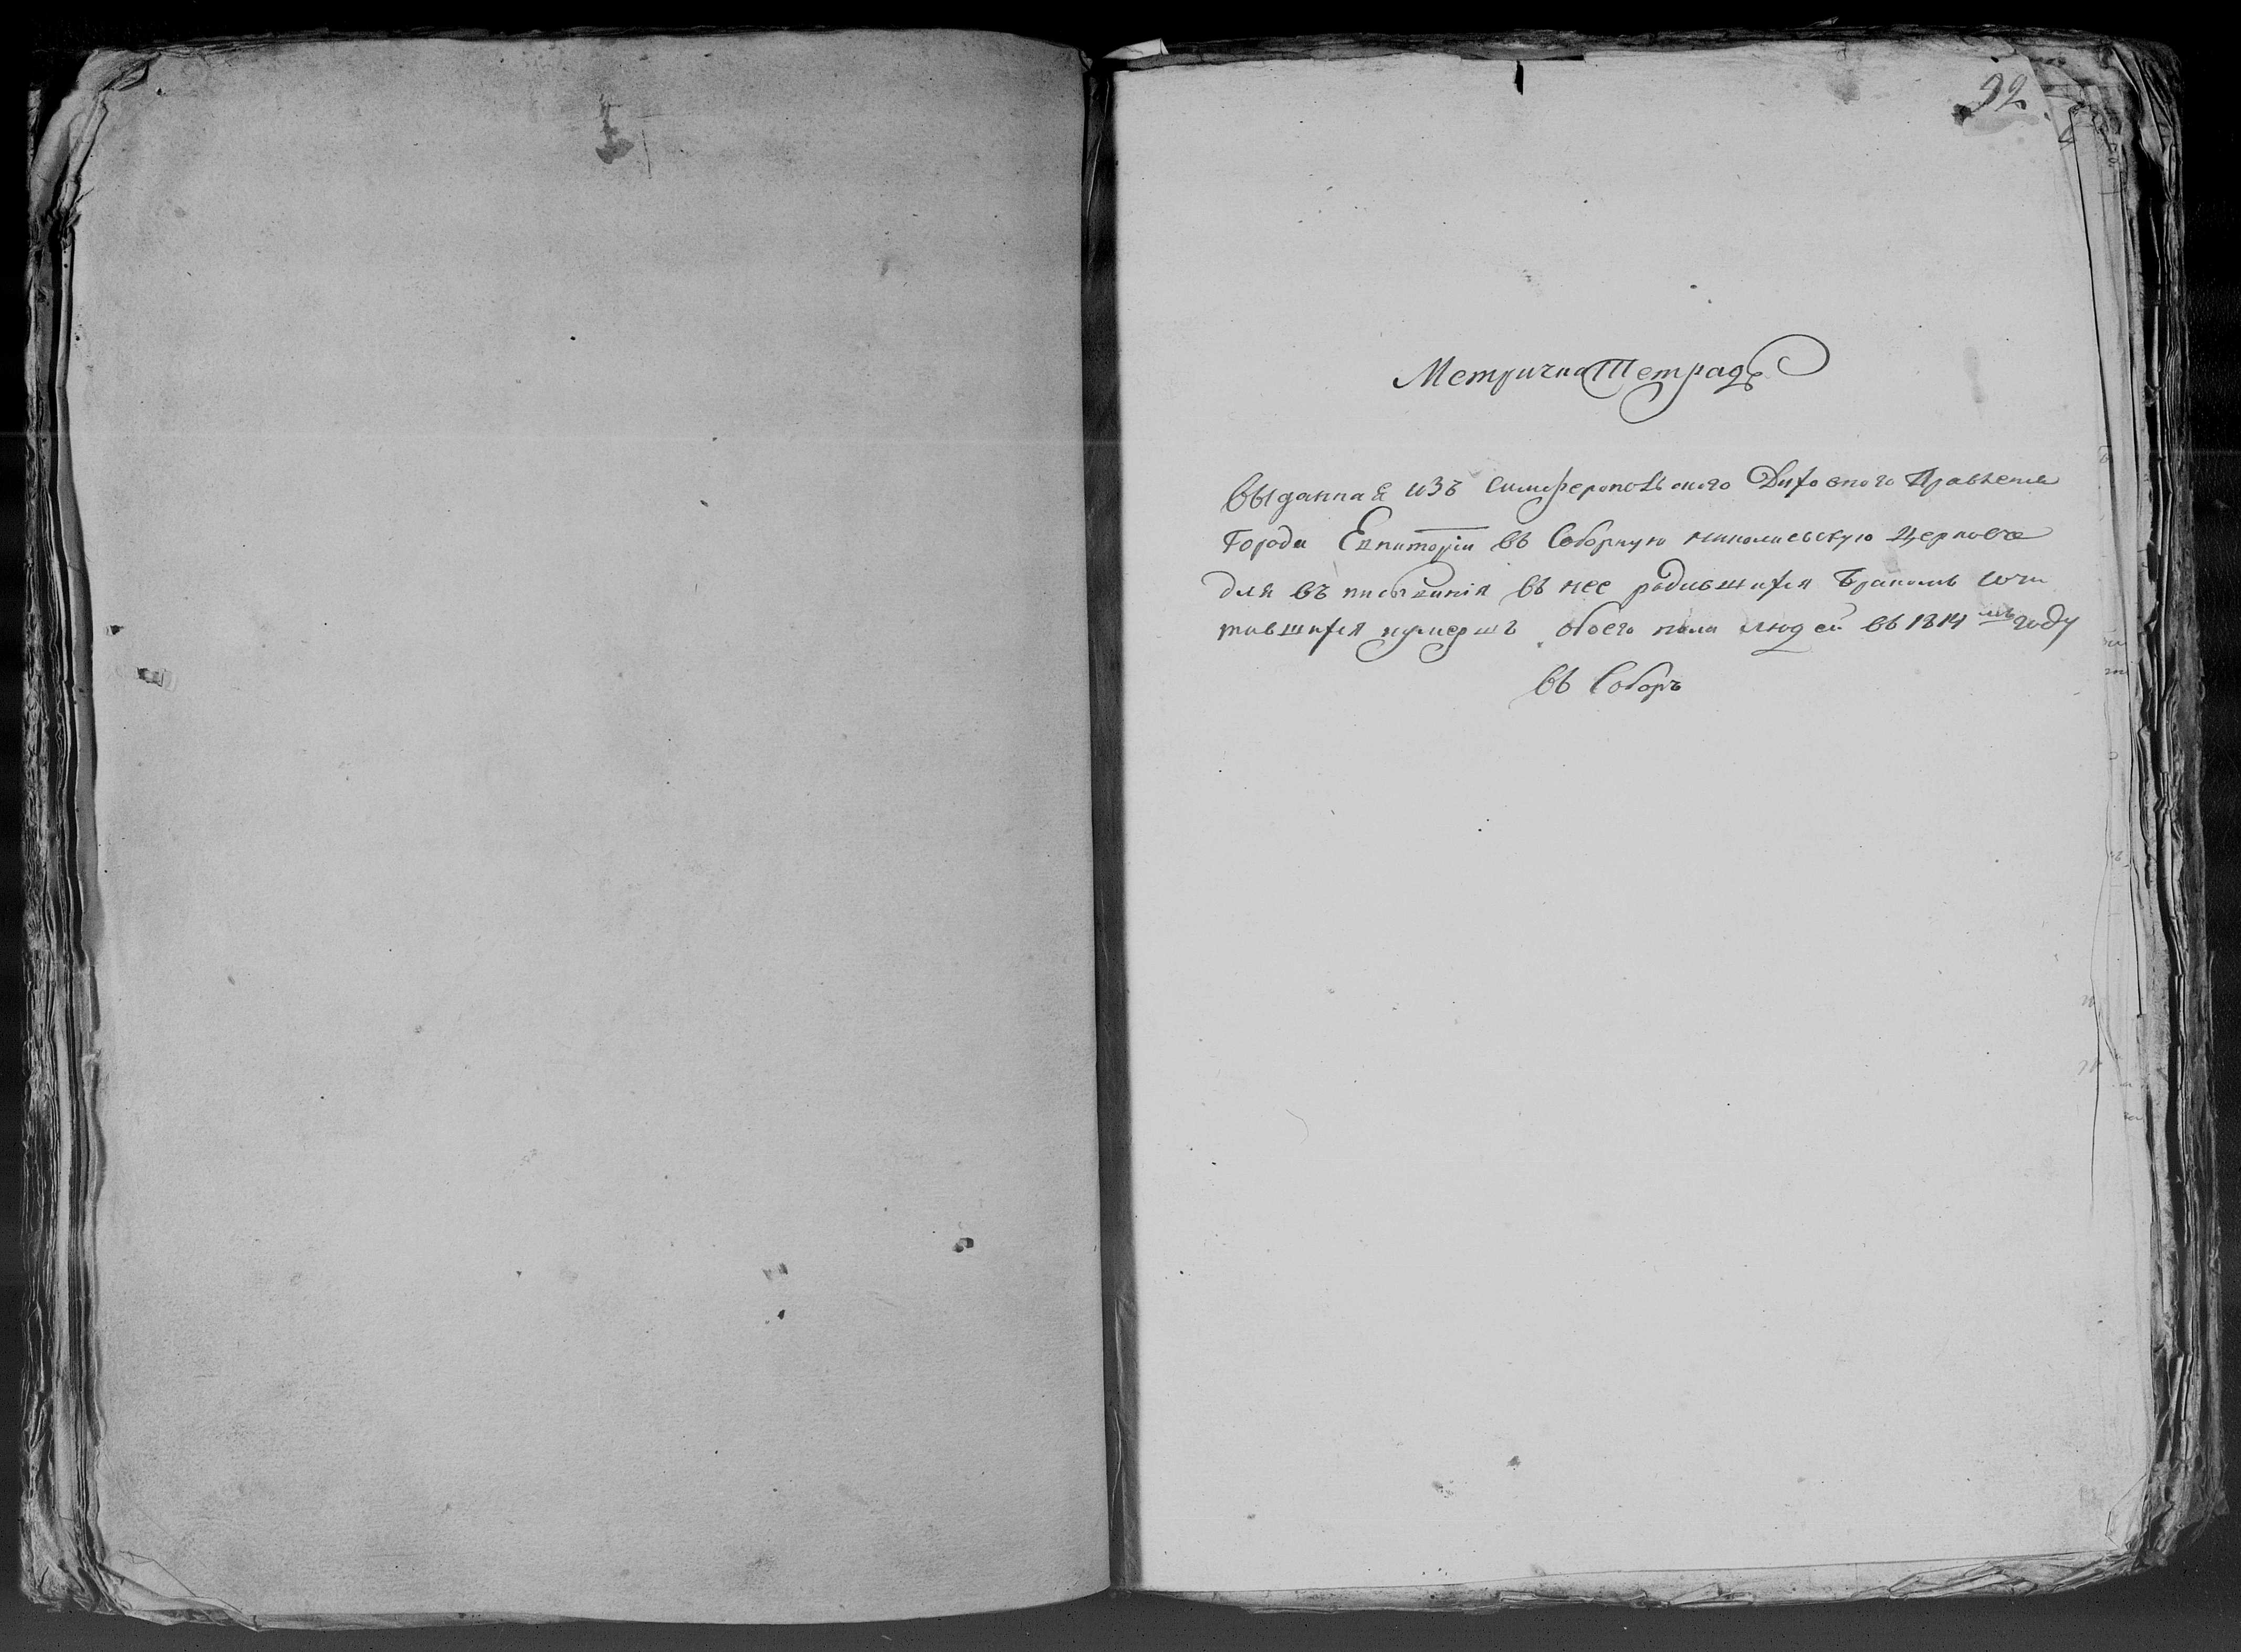 92
Метрична Тетрадь
Выданная изъ Симферопольского Духовного Правления
Города Евпаторіи въ Соборную николаевскую Церковь
для въ писыванія въ нее родившихся браком сочи
тавшихся иумершъ обоего пола людей въ 1814 мъ году
въ Соборъ